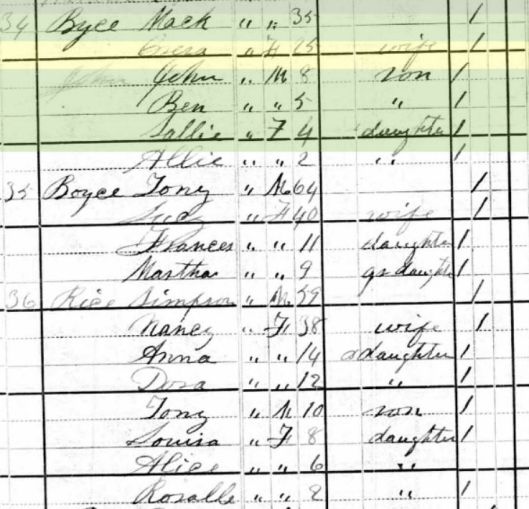 34 Byce Mack " " 35 /
" F 25 wife /
John " M 8 son /
Ben " " 5 " /
Sallie " F 4 daughter /
Allie " " 2 " /
35 Boyce Tony " M 64 /
Lucy " F 40 wife /
Frances " " 11 daughter /
Martha " " 9 gr daughter /
36 Rice Simpson " M 39 /
Nancy " F 38 wife /
Anna " " 14 daughter /
Dora " " 12 " /
Tony " M 10 son /
Louisa " F 8 daughter /
Alice " " 6 "
Rosalle " " 2 " /